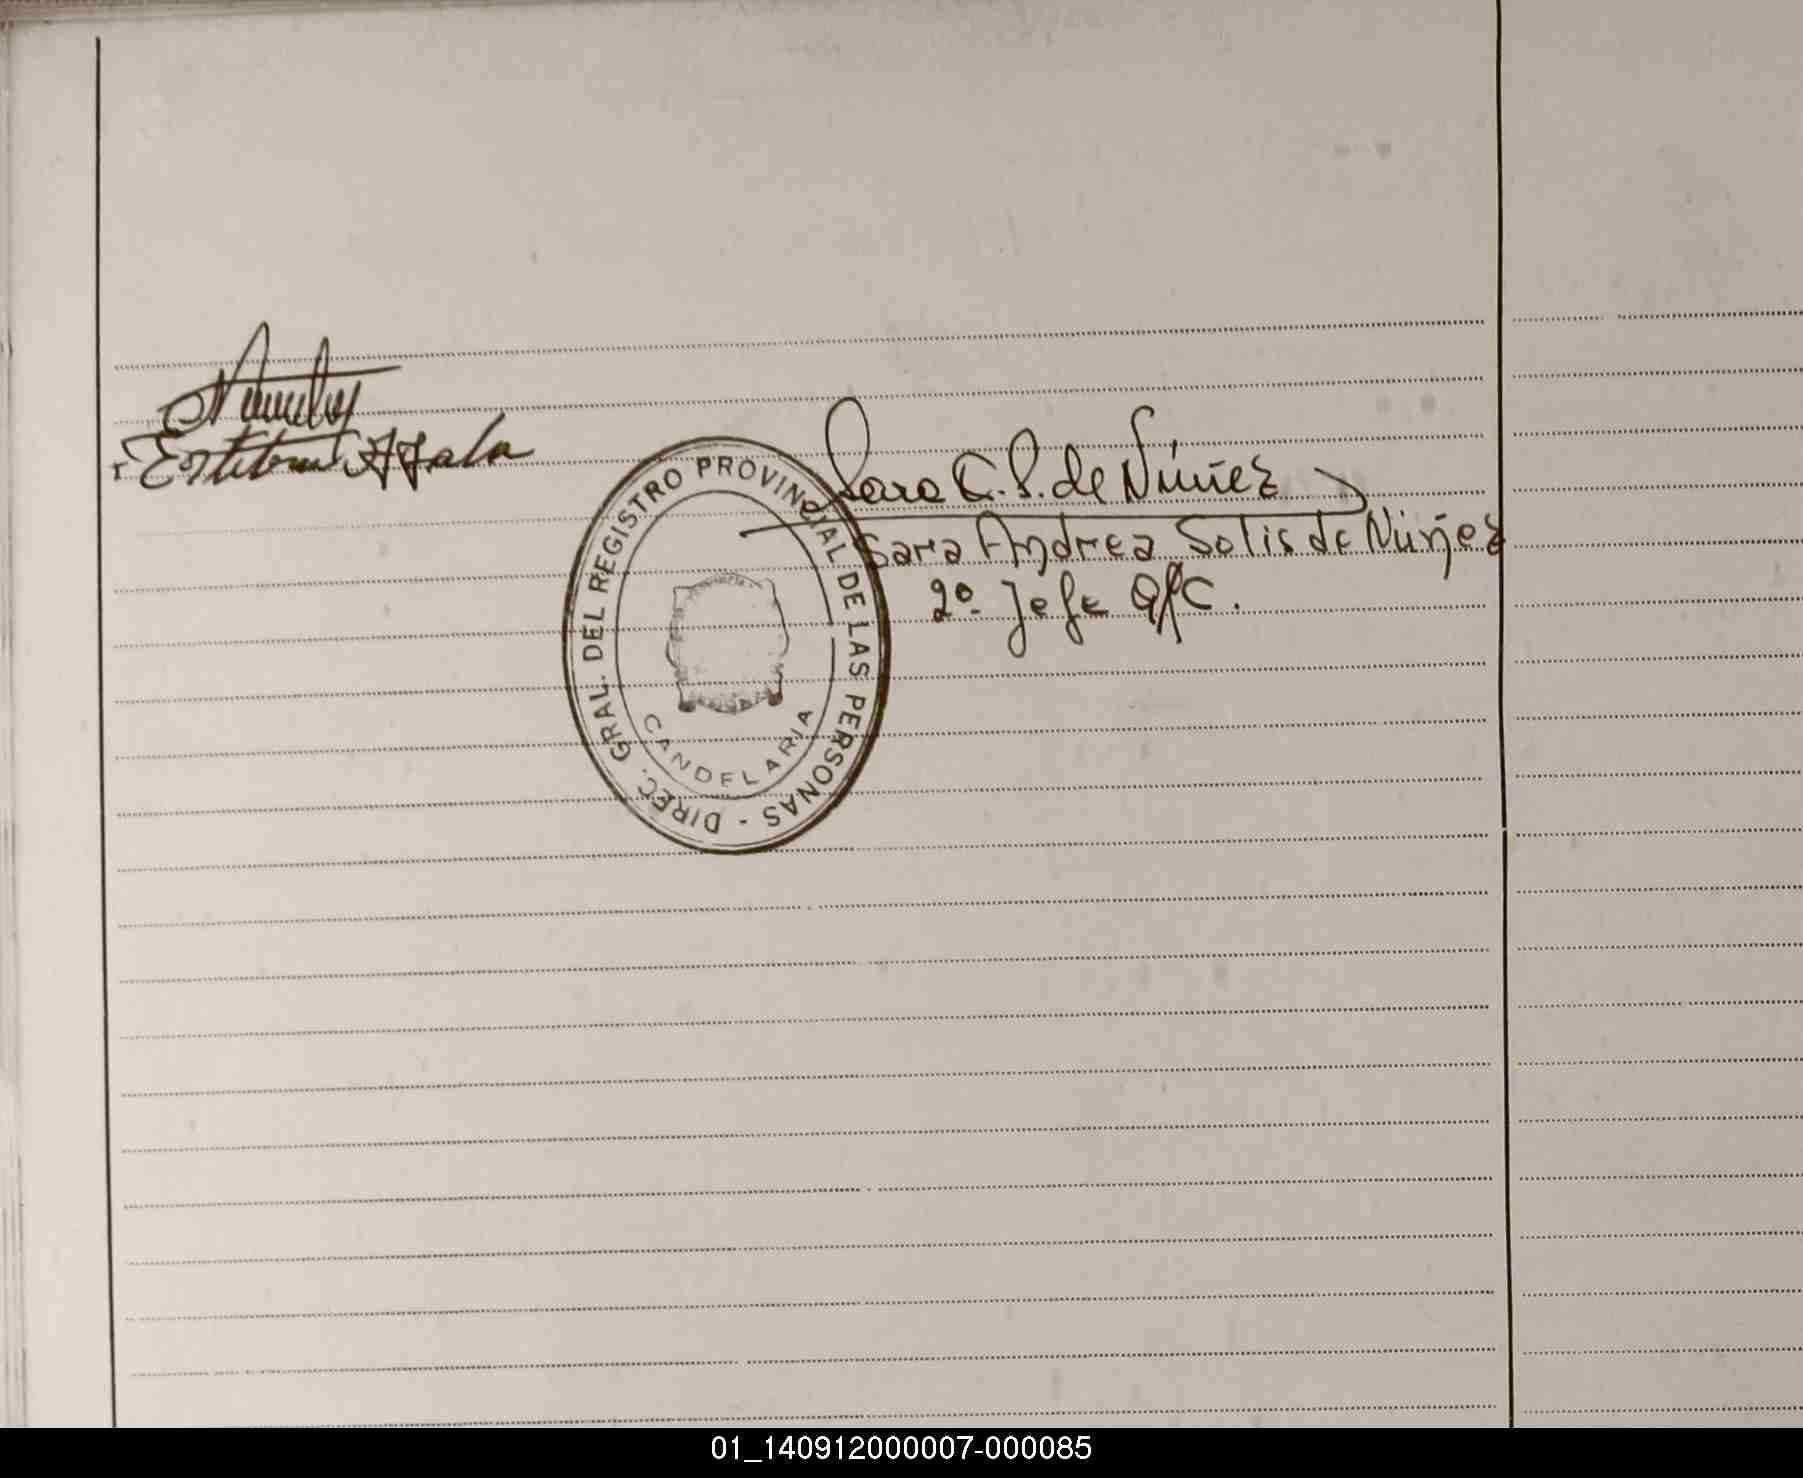 Ayala
Sara A. S. de Núñez
Sara Andrea Solis de Núñez
2º Jefe O/C.
DIREC. GRAL. DEL REGISTRO PROVINCIAL DE LAS PERSONAS -
CANDELARIA
01_140912000007-000085